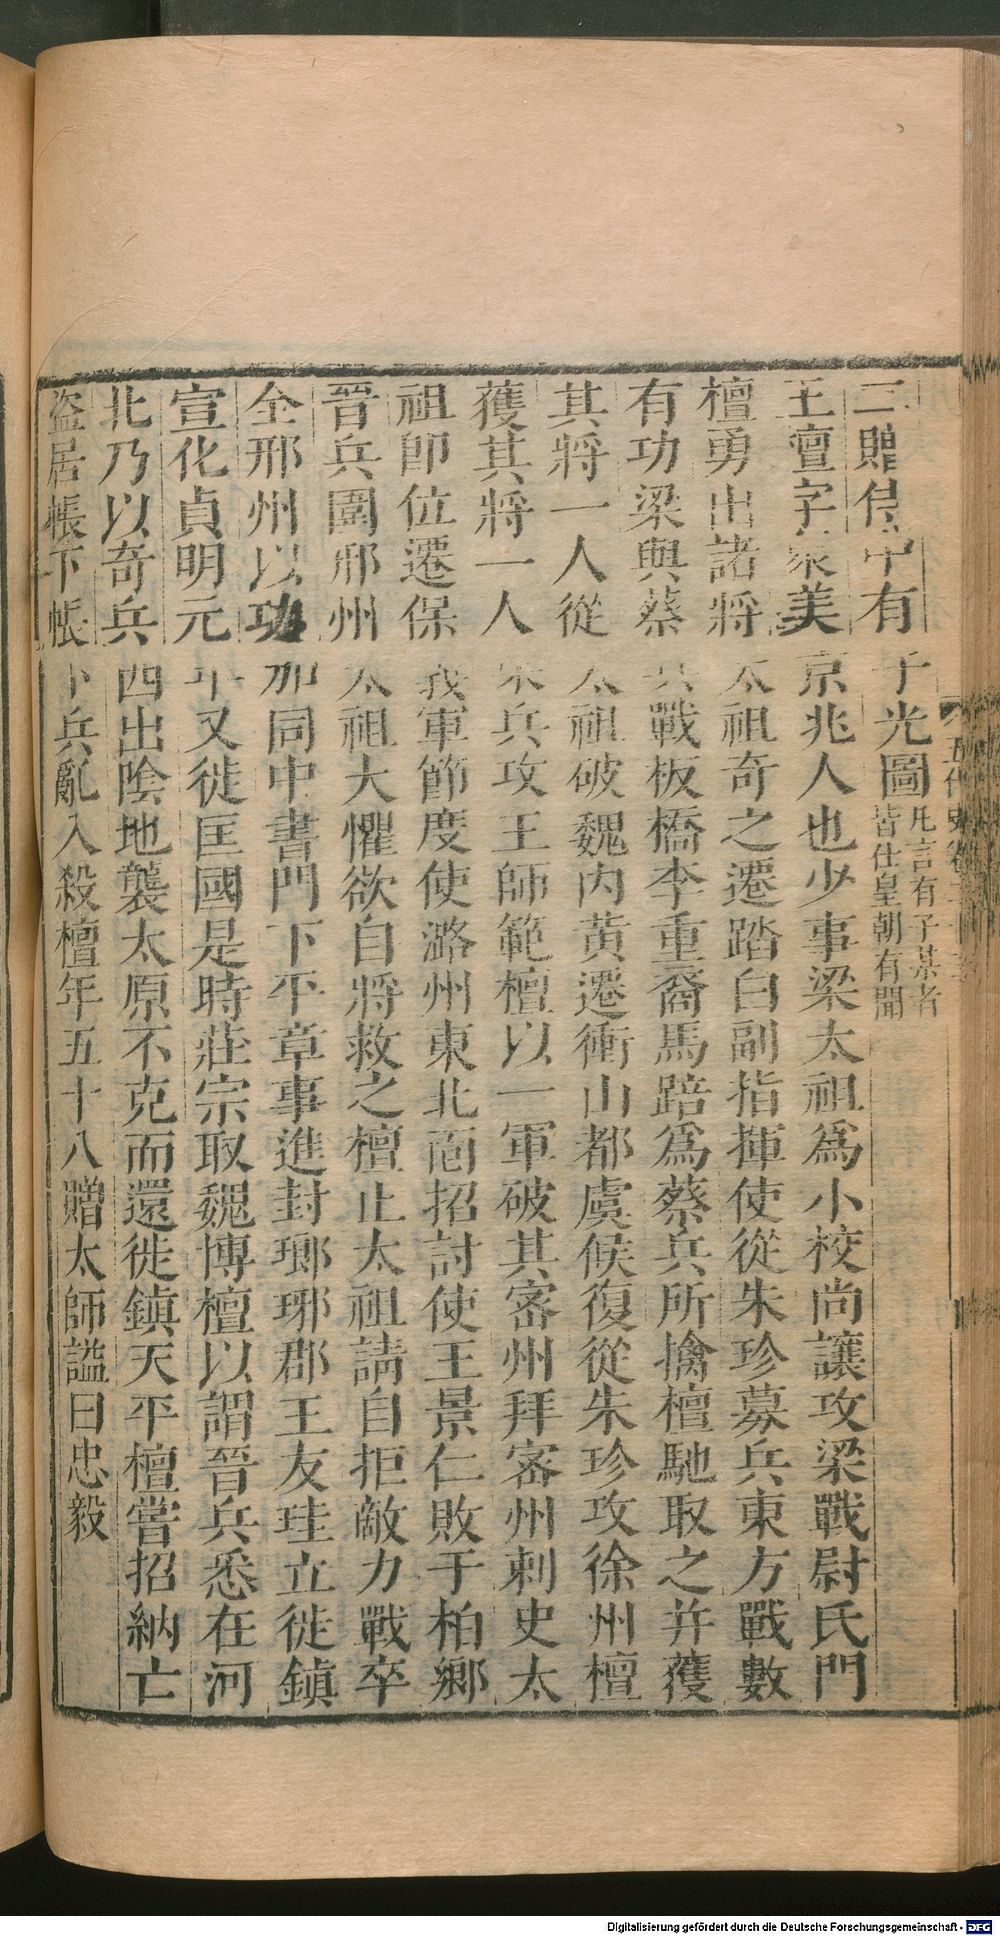 三贈侍中有子光圖凡言有子某者皆仕皇朝有聞
王檀字衆美京兆人也少事梁太祖爲小校尚讓攻梁戰尉氏門
檀勇出諸將太祖奇之遷踏白副指揮使從朱珍募兵東方戰數
有功梁與蔡兵戰板橋李重裔馬踣爲蔡兵所擒檀馳取之并獲
其將一人從太祖破魏内黃遷衝山都虞候復從朱珍攻徐州檀
獲其將一人梁兵攻王師範檀以一軍破其密州拜密州刺史太
祖即位遷保義軍節度使潞州東北面招討使王景仁敗于柏鄉
晉兵圍邢州太祖大懼欲自將救之檀止太祖請自拒敵力戰卒
全邢州以功加同中書門下平章事進封瑯琊郡王友珪立徙鎮
宣化貞明元年又徙匡國是時莊宗取魏博檀以謂晉兵悉在河
北乃以奇兵西出陰地襲太原不克而還徙鎮天平檀嘗招納亡
盜居帳下帳下兵亂入殺檀年五十八贈太師謚曰忠毅
五代史卷二十三
Digitalisierung gefördert durch die Deutsche Forschungsgemeinschaft - DFG